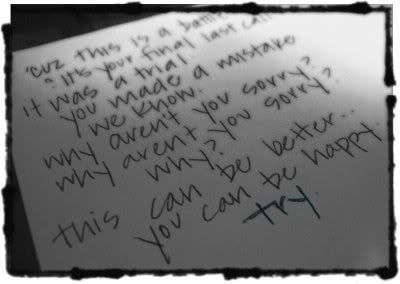 'cuz this is a battle
& it's your final last call
it was a trial.
you made a mistake
we know.
why aren't you sorry?
why aren't you sorry?
why?
this can be better..
you can be happy.
try.